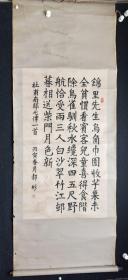 錦里先生烏角巾園收芋栗未
全貧慣看賓客兒童喜得食階
除鳥雀馴秋水纔深四五尺野
航恰受兩三人白沙翠竹江邨
暮相送柴門月色新
杜甫南鄰七律一首